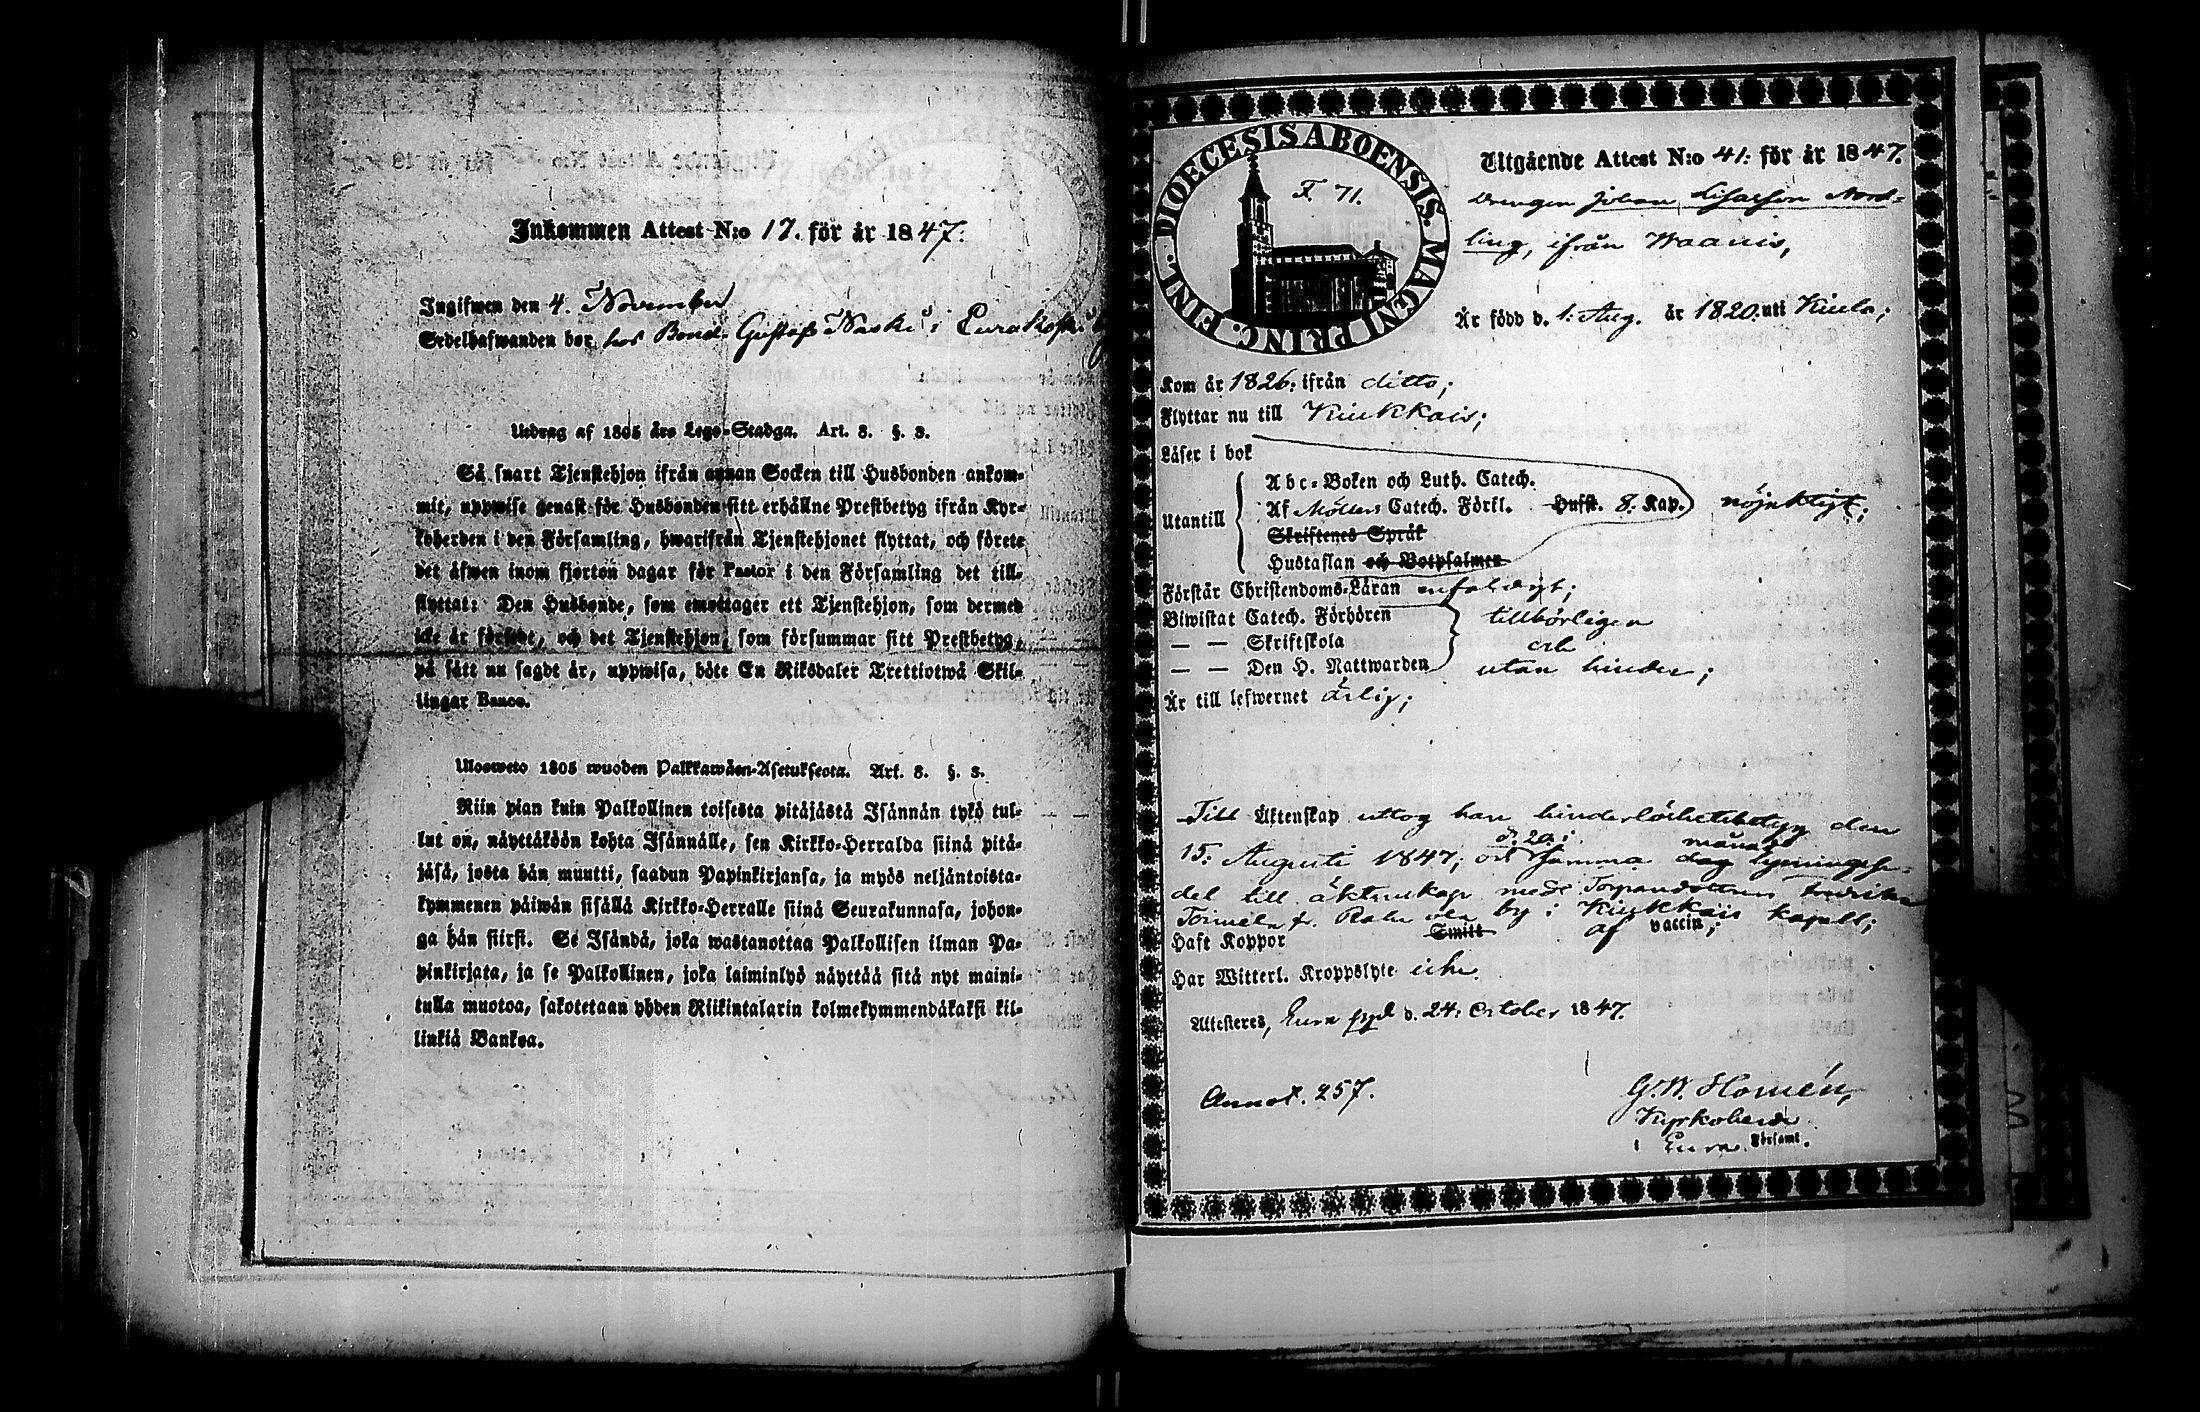 Inkommen Attest N:o 17. för år 1847.
Ingifwen den 4. November
Sedelhafwanden bor hos Bond. Gustaf Naski i Eurakoski
Utdrag af 1805 års Lego-Stadga. Art. 3. §. 3.
Så snart Tjenstehjon ifrån annan Socken till Husbonden ankom-
mit, uppwise genast för Husbonden sitt erhållne Prestbetyg ifrån Kyr-
koherden i den Församling, hwarifrån Tjenstehjonet flyttat, och förete
det äfwen inom fjorton dagar för Pastor i den Församling det till-
flyttat: Den Husbonde, som emottager ett Tjenstehjon, som dermed
icke är försedt, och det Tjenstehjon, som försummar sitt Prestbetyg,
på sätt nu sagdt är, uppwisa, böte En Riksdaler Trettiotwå Skil-
lingar Banco.
Ulosweto 1805 wuoden Palkkawäen-Asetuksesta. Art. 3. §. 3.
Niin pian kuin Palkollinen toisesta pitäjästä Isännän tykö tul-
lut on, näyttäköön kohta Isännälle, sen Kirkko-Herralda siinä pitä-
jäsä, josta hän muutti, saadun Papinkirjansa, ja myös neljäntoista-
kymmenen päiwän sisällä Kirkko-Herralle siinä Seurakunnasa, johon-
ga hän siirsi. Se Isändä, joka wastanottaa Palkollisen ilman Pa-
pinkirjata, ja se Palkollinen, joka laiminlyö näyttää sitä nyt maini-
tulla muotoa, sakotetaan yhden Riikintalarin kolmekymmendäkaksi kil-
linkiä Bankoa.
DIOECESIS ABOENSIS. MAGNI PRINC. FINL.
F. 71.
Utgående Attest N:o 41: för år 1847.
Drengen Johan Esaiasson Nord-
ling, ifrån Waanis,
Är född d. 1: Aug. år 1820. uti Kiula;
Kom år 1826: ifrån ditto;
Flyttar nu till Kiukkais;
Läser i bok
Utantill
Abc-Boken och Luth. Catech.
Af Möllers Catech. Förkl. Husst. 8. Kap. nöjaktigt;
Skriftenes Språk
Hustaflan och Botpsalmen
Förstår Christendoms-Läran enfaldigt;
Biwistat Catech. Förhören tillbörligen
— — Skriftskola och
— — Den H. Nattwarden utan hinder;
Är till lefwernet ärlig;
Till Äktenskap uttog han hinderlöshetsbetyg den
d. 20: månads
15: Augusti 1847; och samma dag lysningsse-
del till äktenskap med Torpardottern Fredrika
by i Kiukkais kapell;
Haft Koppor Smitt af vaccin;
Har Witterl. Kroppslyte icke.
Attesteres, Eura d. 24: October 1847.
Annot. 257.
G. W. Homén,
Kyrkoherde
i Eura Församl.